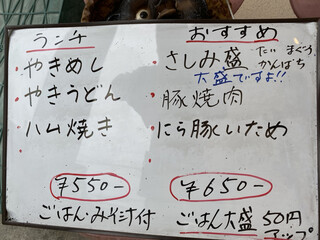 ランチ
・やきめし
・やきうどん
・ハム焼き
¥550-
ごはん・みそ汁付
おすすめ
・さしみ盛 たい まぐろ かんぱち
大盛ですよ!!
・豚焼肉
・にら豚いため
¥650-
ごはん大盛 50円
アップ